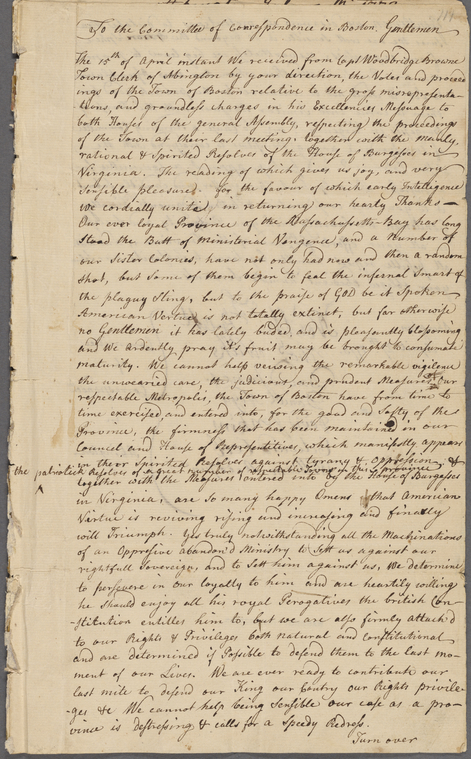 To the Committee of Correspondence in Boston, Gentlemen
The 15th of April instant We received from Capt Woodbridge Browne
Town Clerk of Abington by your direction, the Votes and proceed
ings of the Town of Boston relative to the gross misrepresenta-
tions, and groundless charges in his Excellencies Message to
both Houses of the general Assembly, respecting the proceedings
of the Town at their last meeting: together with the manly,
rational & Spirited Resolves of the House of Burgesses in
Virginia. The reading of which gives us joy, and very
sensible pleasure. for the favour of which early Intelligence
We cordially unite, in returning our hearty Thanks—
Our ever loyal Province of the Massachusetts Bay has long
stood the Butt of ministerial Vengence, and a number of
our Sister Colonies, have not only had now and then a random
shot, but some of them begin to feel the infernal smart of
the plaguy Sting, but to the praise of GOD be it Spoken
American Vertue is not totally extinct, but far otherwise
no Gentlemen it has lately budded, and is pleasantly blossoming
and We ardently pray it's fruit may be brought to consumate
maturity. We cannot help veiwing the remarkable vigilence
the unwearied care, the Judicious, and prudent Measures, that Our
respectable Metropolis, the Town of Boston have from time to
time exercised, and entered into, for the good and Safty of the
Province, the firmness that has been maintained in our
Council and House of Representitives, which manifestly appears
in their Spirited Resolves against tyrany & Oppression, &
the patriotick Resolves of a great number of respectable Towns in this province,
together with the Measures entered into by the House of Burgesses
in Virginia, are so many happy Omens that American
Virtue is reviving rising and increasing and finally
will Triumph. Yes truly notwithstanding all the Machinations
of an Oppresive abandon'd Ministry to Sett us against our
rightfull Sovereign, and to Sett him against us, We determine
to persevere in our loyalty to him and are heartily willing
he should enjoy all his royal Perogatives the british Con-
stitution entitles him to, but we are also firmly attach'd
to our Rights & Privileges both natural and constitutional
and are determined if Possible to defend them to the last mo-
ment of our Lives. We are ever ready to contribute our
last mite to defend our King our Contry our Rights privile-
ges &c We cannot help being Sensible our case as a pro-
vince is destressing & calls for a Speedy Redress.
Turn over